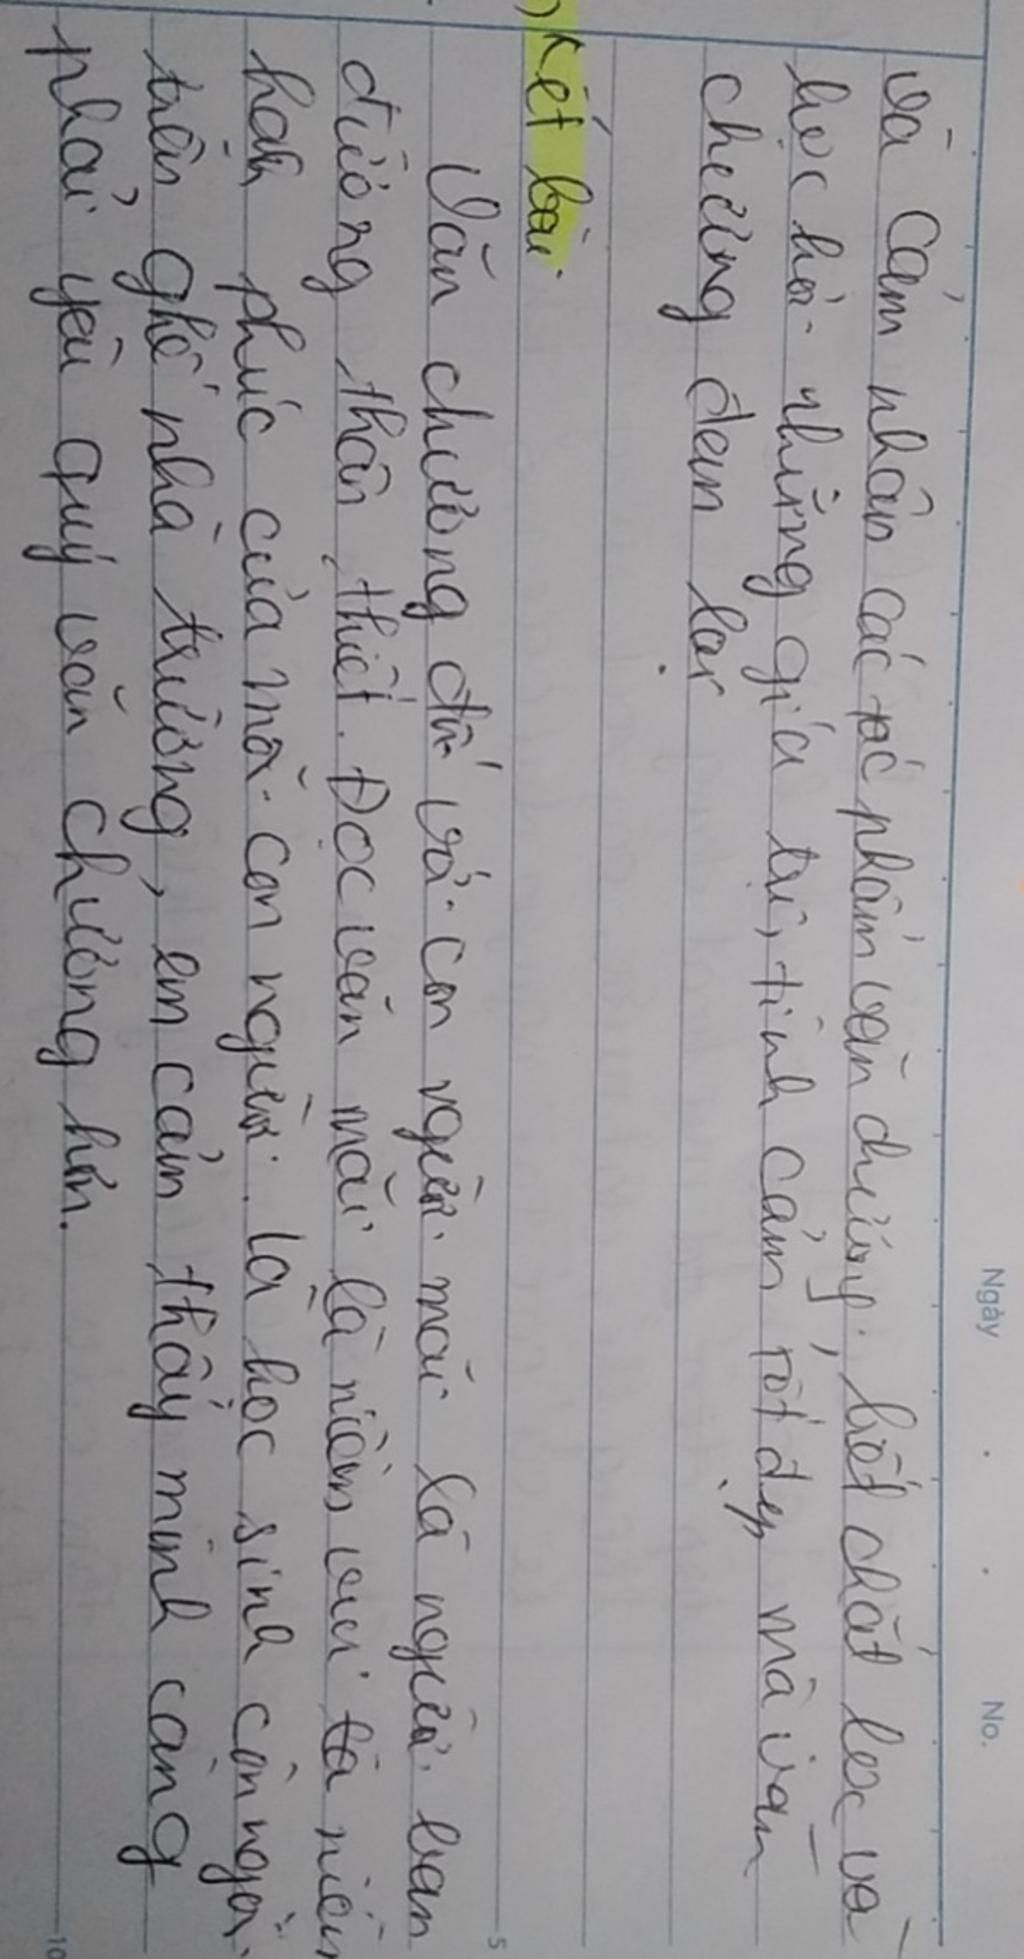 Ngày . . No.
và cảm nhận các tác phẩm văn chương, biết chắt lọc và
học hỏi những giá trị, tình cảm tốt đẹp mà văn
chương đem lại
) Kết bài
Văn chương đối với con người mãi là người bạn
đường thân thiết. Đọc văn mãi là niềm vui là niềm
hạnh phúc của mỗi con người. là học sinh còn ngồi
trên ghế nhà trường, em cảm thấy mình càng
phải yêu quý văn chương hơn.
5
10